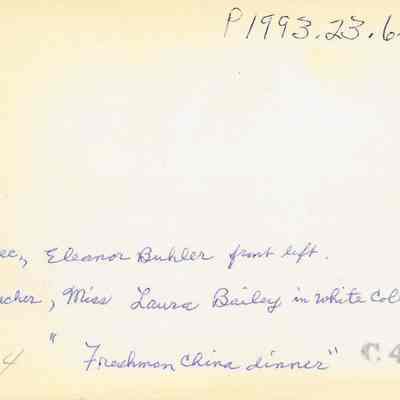 P1993.23.6
ec., Eleanor Buhler front left.
acher, Miss Laura Bailey in white Coll
4 "Freshman China dinner" C.4